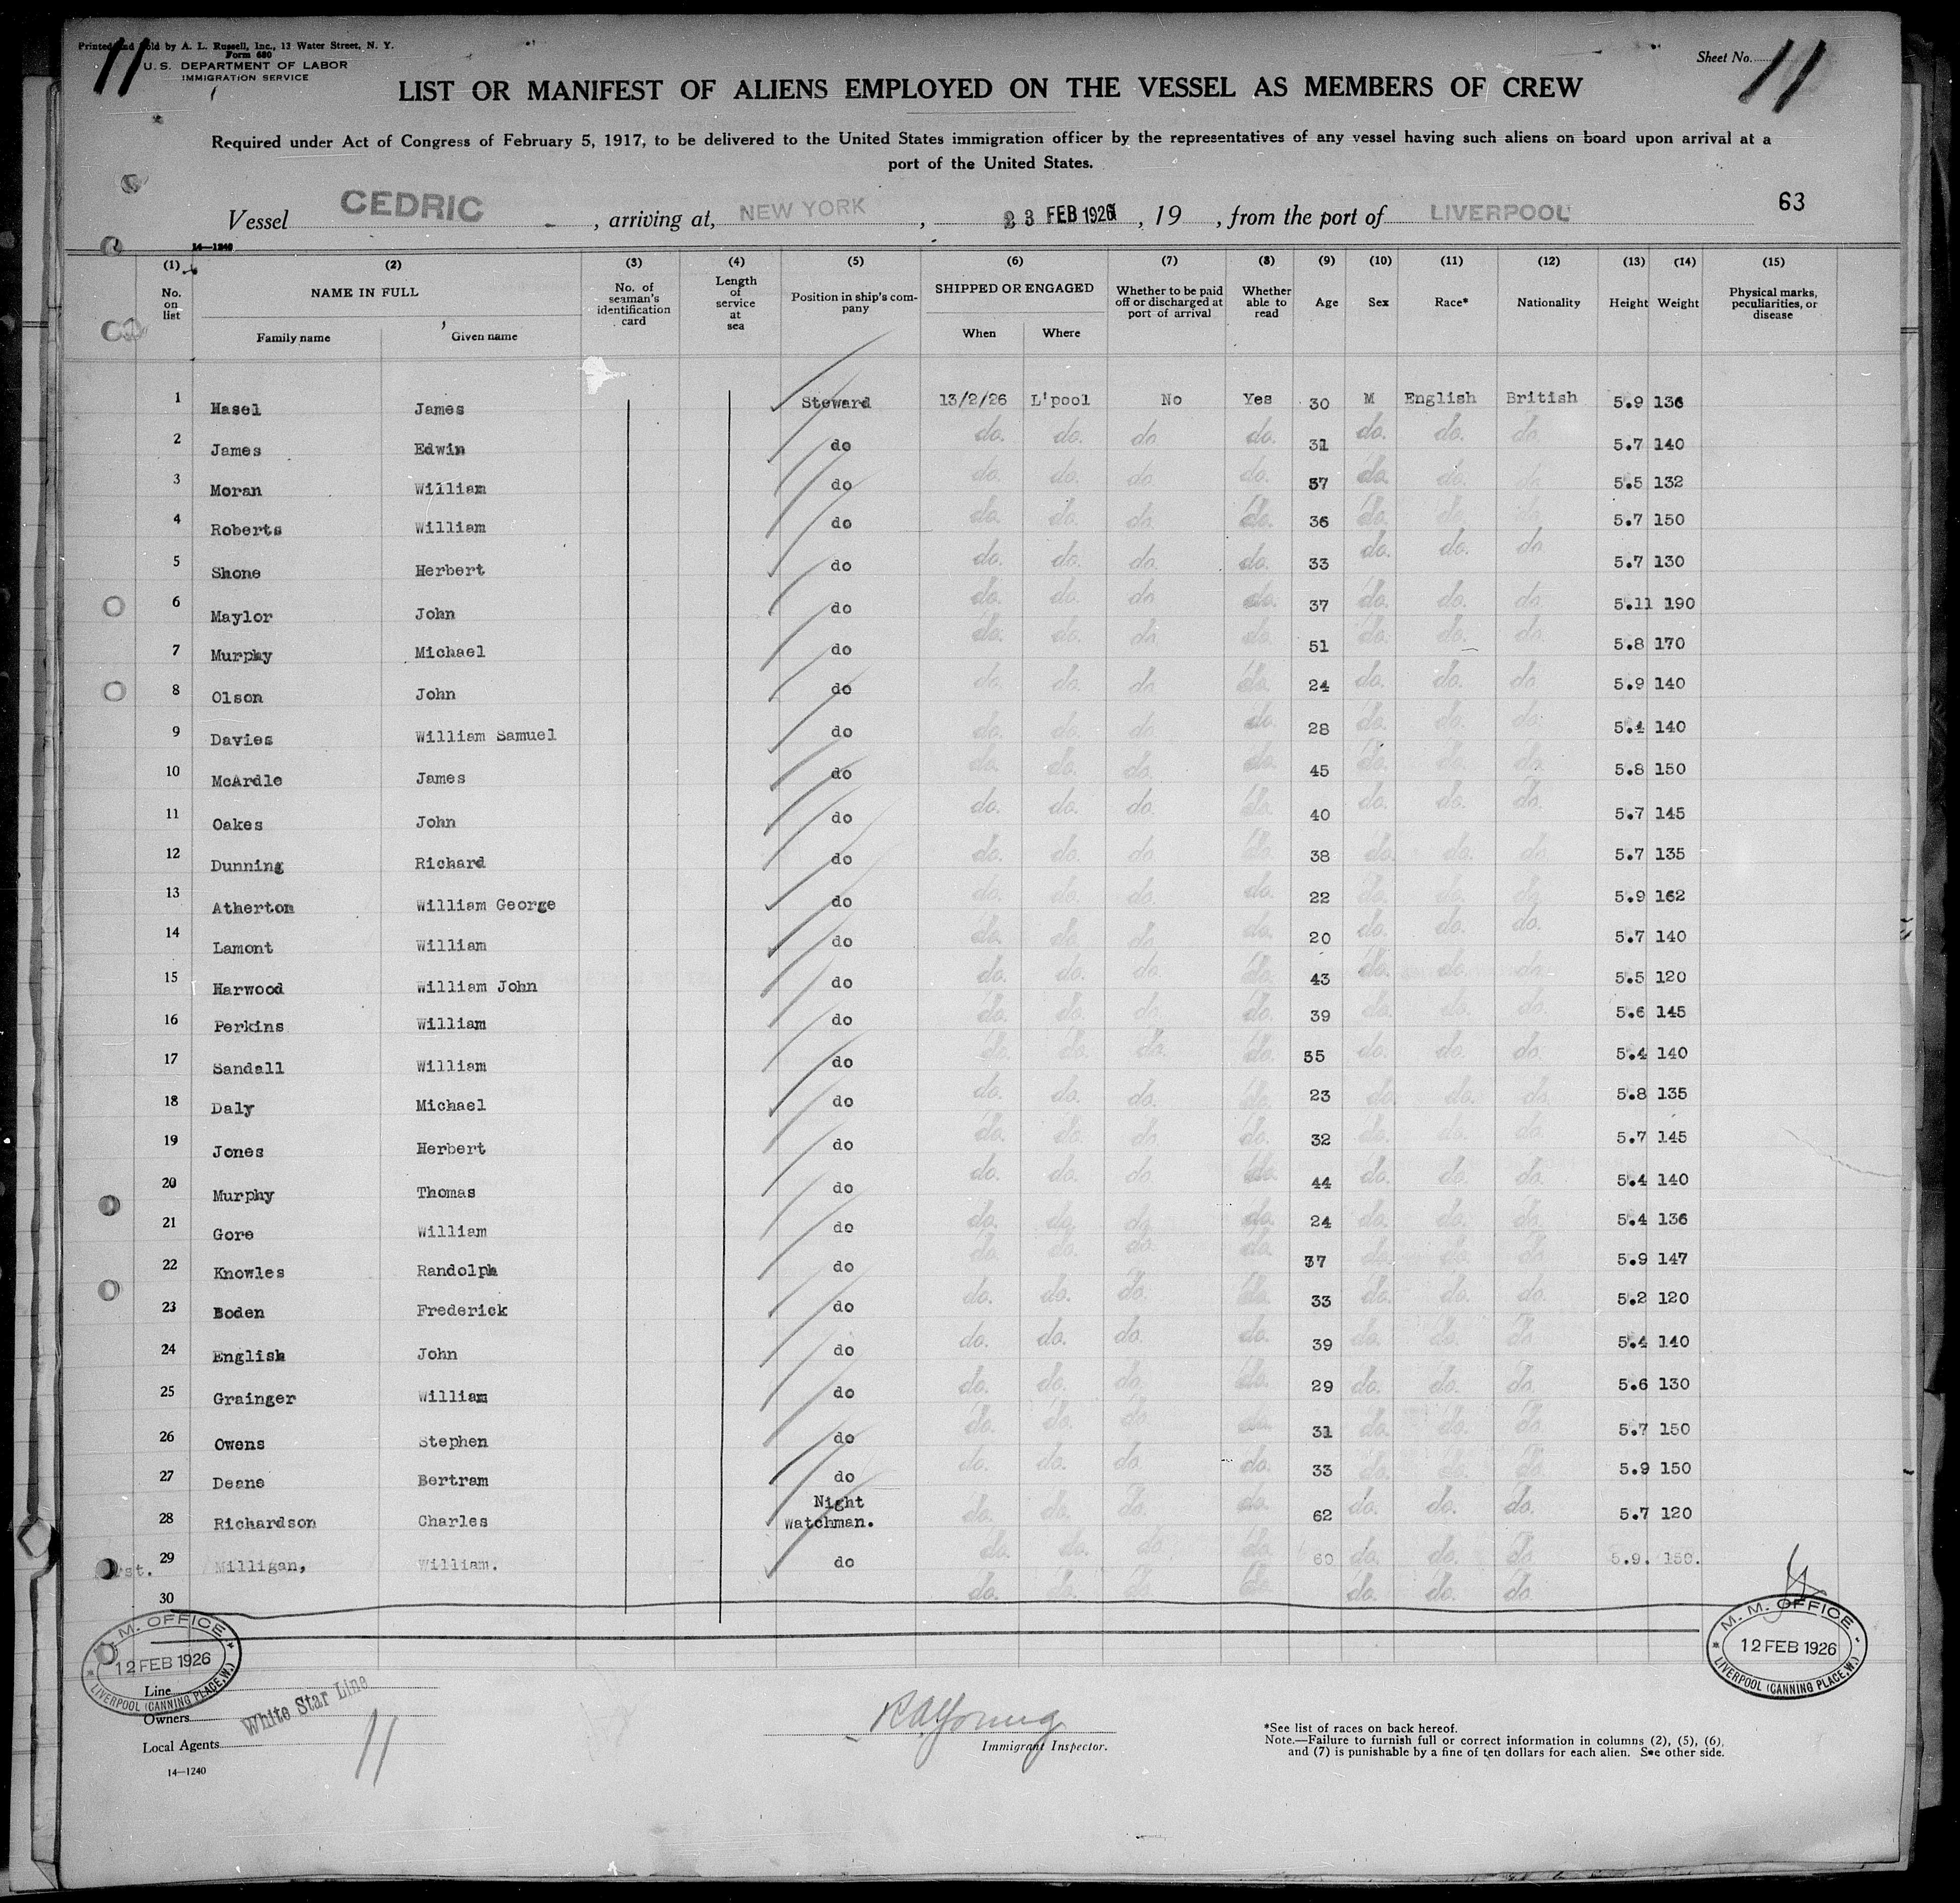 Printed and Sold by A. L. Russell, Inc., 13 Water Street, N. Y.
Form 680
U. S. DEPARTMENT OF LABOR
IMMIGRATION SERVICE
11
Sheet No. 11
LIST OR MANIFEST OF ALIENS EMPLOYED ON THE VESSEL AS MEMBERS OF CREW
Required under Act of Congress of February 5, 1917, to be delivered to the United States immigration officer by the representatives of any vessel having such aliens on board upon arrival at a
port of the United States.
63
Vessel CEDRIC, arriving at, NEW YORK, 23 FEB 1926, 19 , from the port of LIVERPOOL
14—1240
(1) (2) (3) (4) (5) (6) (7) (8) (9) (10) (11) (12) (13) (14) (15)
No. on list NAME IN FULL Family name Given name No. of seaman's identification card Length of service at sea Position in ship's company SHIPPED OR ENGAGED When Where Whether to be paid off or discharged at port of arrival Whether able to read Age Sex Race* Nationality Height Weight Physical marks, peculiarities, or disease
1 Hasel James Steward 13/2/26 L'pool No Yes 30 M English British 5.9 136
2 James Edwin do do. do. do do. 31 do. do. do 5.7 140
3 Moran William do do. do. do do. 37 do. do. 5.5 132
4 Roberts William do do. do. do. do. 36 do. do 5.7 150
5 Shone Herbert do do. do. do. do. 33 do. do. do 5.7 130
6 Maylor John do do. do. do do. 37 do. do. do 5.11 190
7 Murphy Michael do do. do. do do 51 do. do. do 5.8 170
8 Olson John do do. do. do do. 24 do. do. do 5.9 140
9 Davies William Samuel do do. do. do do. 28 do. do. do. 5.4 140
10 McArdle James do do. do. do. do. 45 do. do. do. 5.8 150
11 Oakes John do do. do. do. do. 40 do. do. do. 5.7 145
12 Dunning Richard do do. do. do. do. 38 do. do. do 5.7 135
13 Atherton William George do do. do. do. do. 22 do. do. do. 5.9 162
14 Lamont William do do. do. do. do. 20 do. do. do. 5.7 140
15 Harwood William John do do. do. do do. 43 do. do. do 5.5 120
16 Perkins William do do. do. do. do. 39 do. do. do 5.6 145
17 Sandell William do do. do. do. do. 35 do. do. do. 5.4 140
18 Daly Michael do do. do. do. do. 23 do. do. do 5.8 135
19 Jones Herbert do do. do. do. do. 32 do. do. do 5.7 145
20 Murphy Thomas do do. do. do. do. 44 do. do. do. 5.4 140
21 Gore William do do. do. do. do. 24 do. do. do. 5.4 136
22 Knowles Randolph do do. do. do. do. 37 do. do. do 5.9 147
23 Boden Frederick do do. do. do. do. 33 do. do. do 5.2 120
24 English John do do. do. do. do. 39 do. do. do. 5.4 140
25 Grainger William do do. do. do. do. 29 do. do. do. 5.6 130
26 Owens Stephen do do. do. do. do. 31 do. do. do. 5.7 150
27 Deane Bertram do do. do. do do. 33 do. do. do. 5.9 150
28 Richardson Charles Night Watchman. do. do. do. do. 62 do. do. do. 5.7 120
29 Milligan, William. do do. do. do. do. 60 do. do. do. 5.9. 150.
30 do. do. do. do. do. do. do.
M. M. OFFICE
12 FEB 1926
LIVERPOOL (CANNING PLACE, W.)
M. M. OFFICE
12 FEB 1926
LIVERPOOL (CANNING PLACE, W.)
Line
Owners White Star Line
Local Agents
11
14—1240
R A Young
Immigrant Inspector.
*See list of races on back hereof.
Note.—Failure to furnish full or correct information in columns (2), (5), (6),
and (7) is punishable by a fine of ten dollars for each alien. See other side.